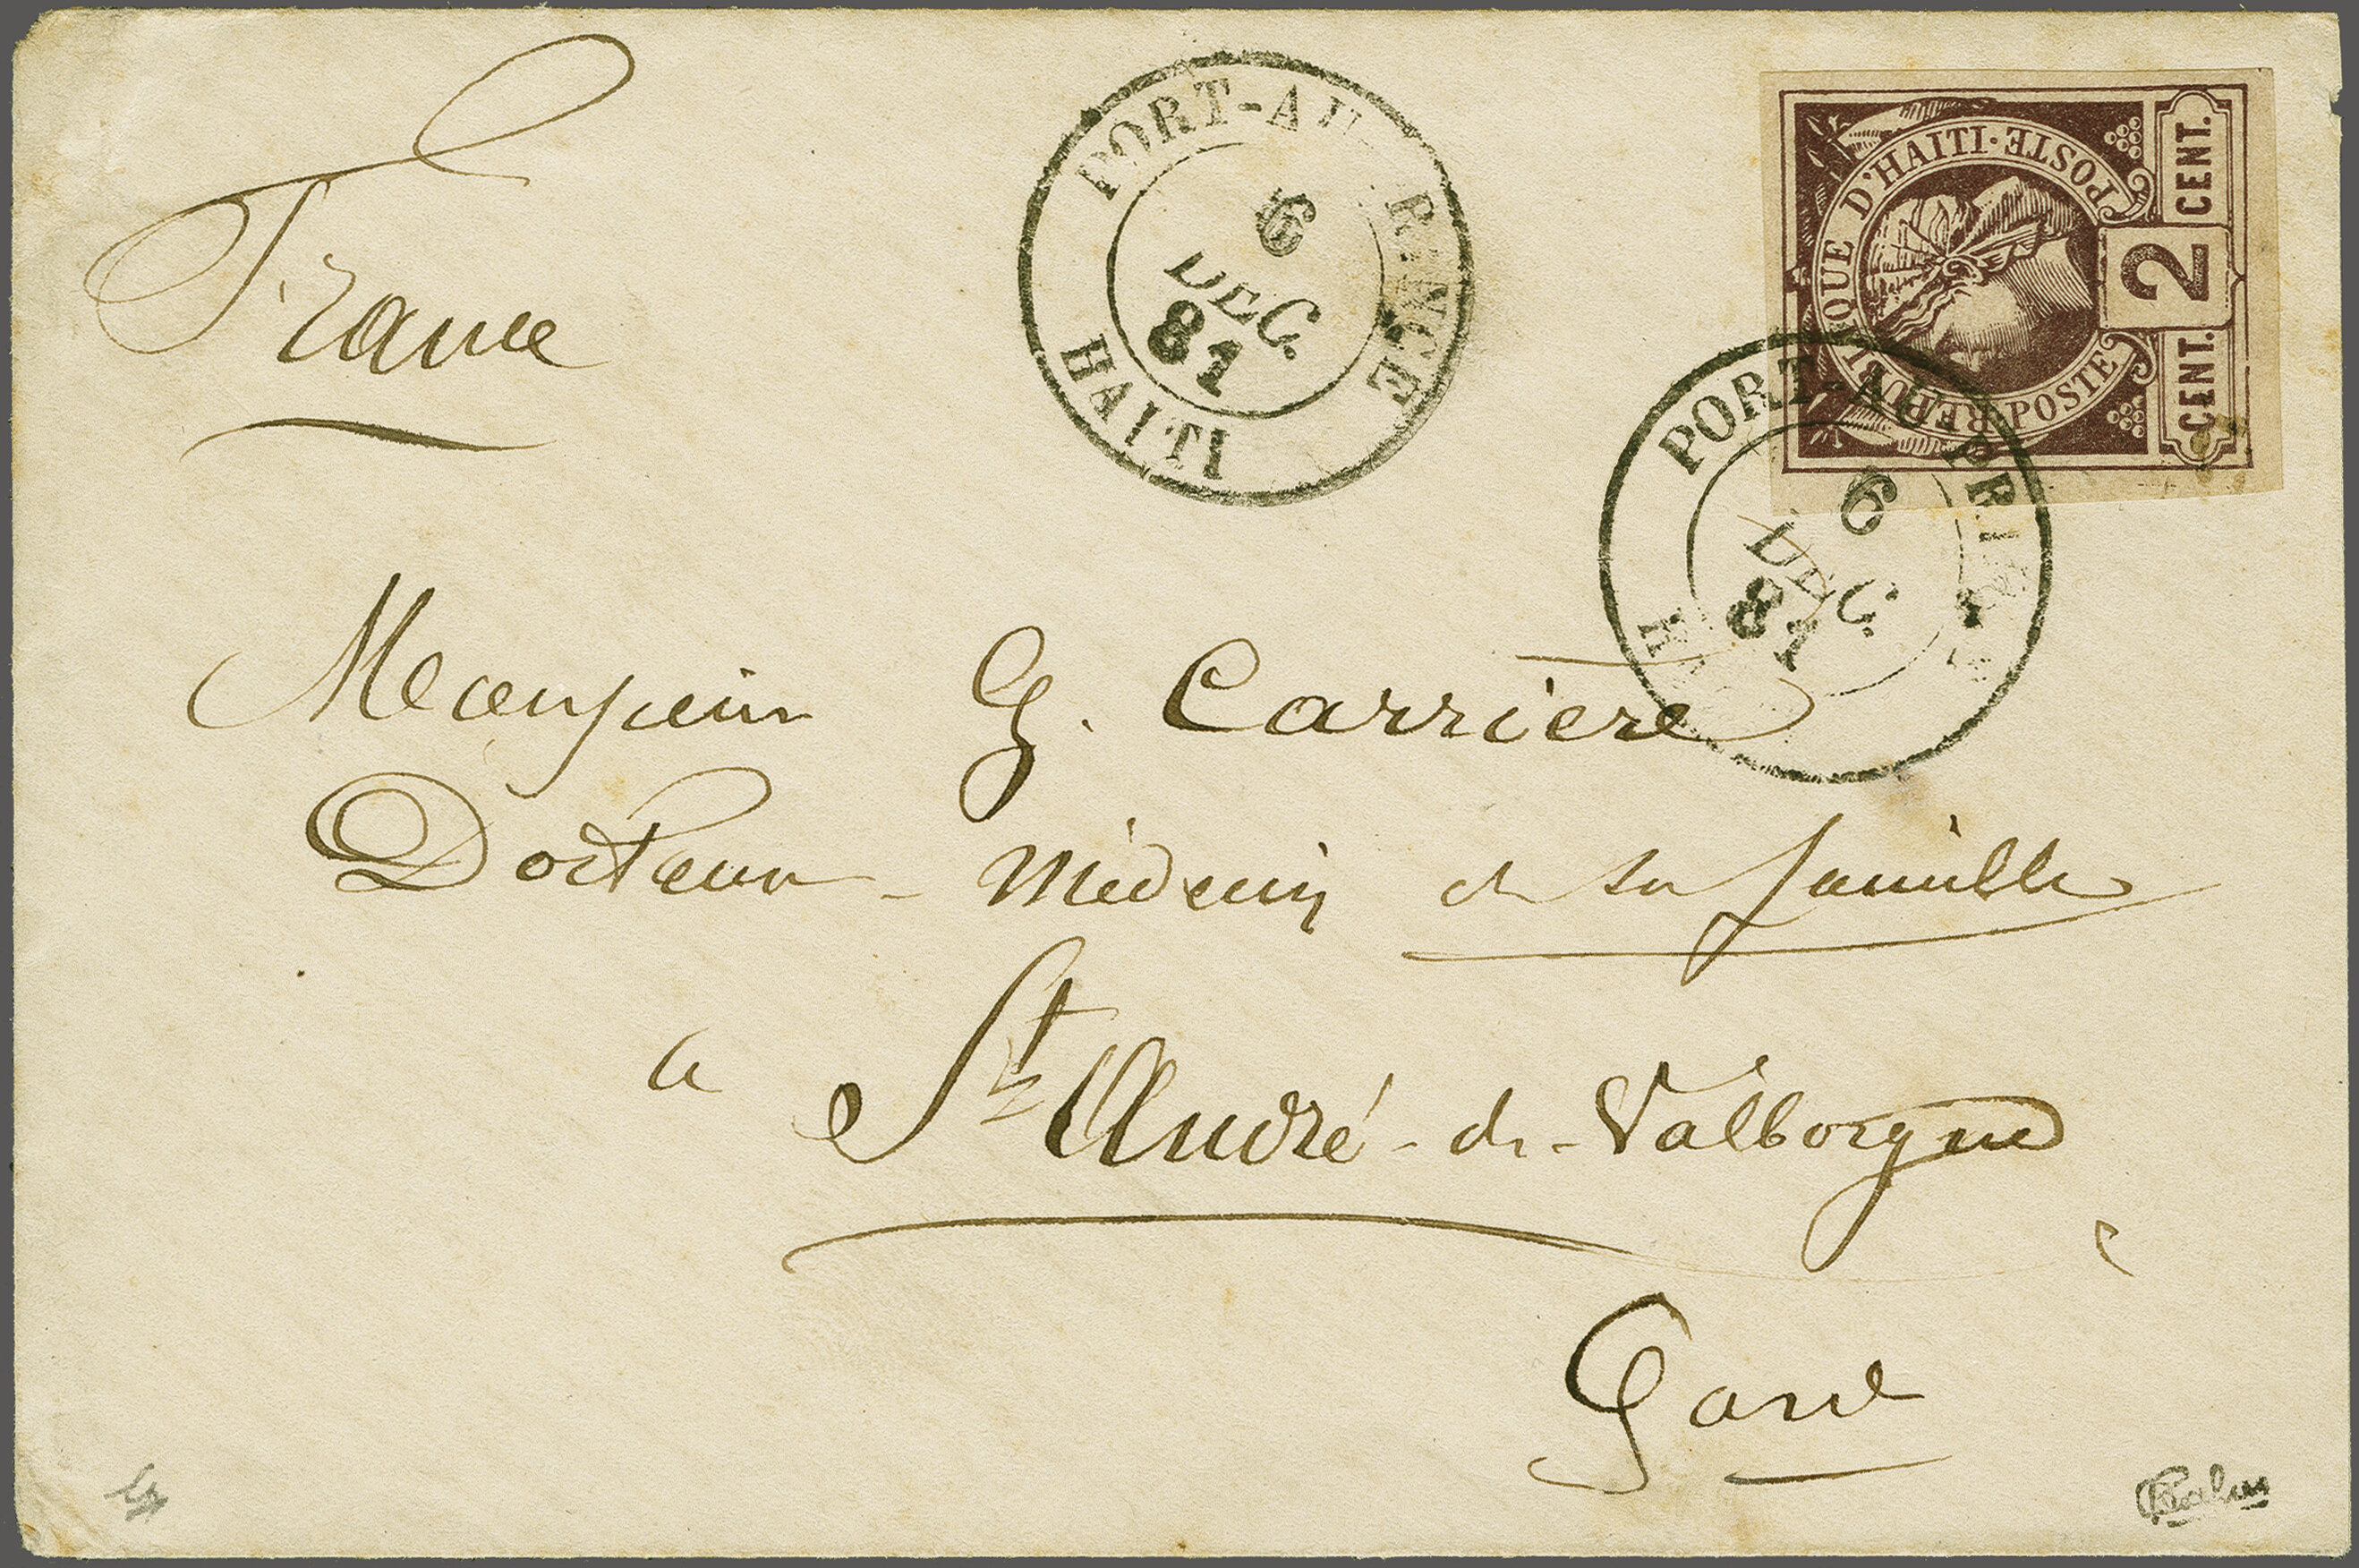 France
PORT-AU-PRINCE
6
DEC.
81
HAITI
REPUBLIQUE D'HAITI · POSTE
POSTE
CENT. 2 CENT.
PORT-AU-PRINCE
6
DEC.
81
HAITI
Monsieur G. Carrière
Docteur - Médecin de sa famille
a St André-de-Valborgne
Gard